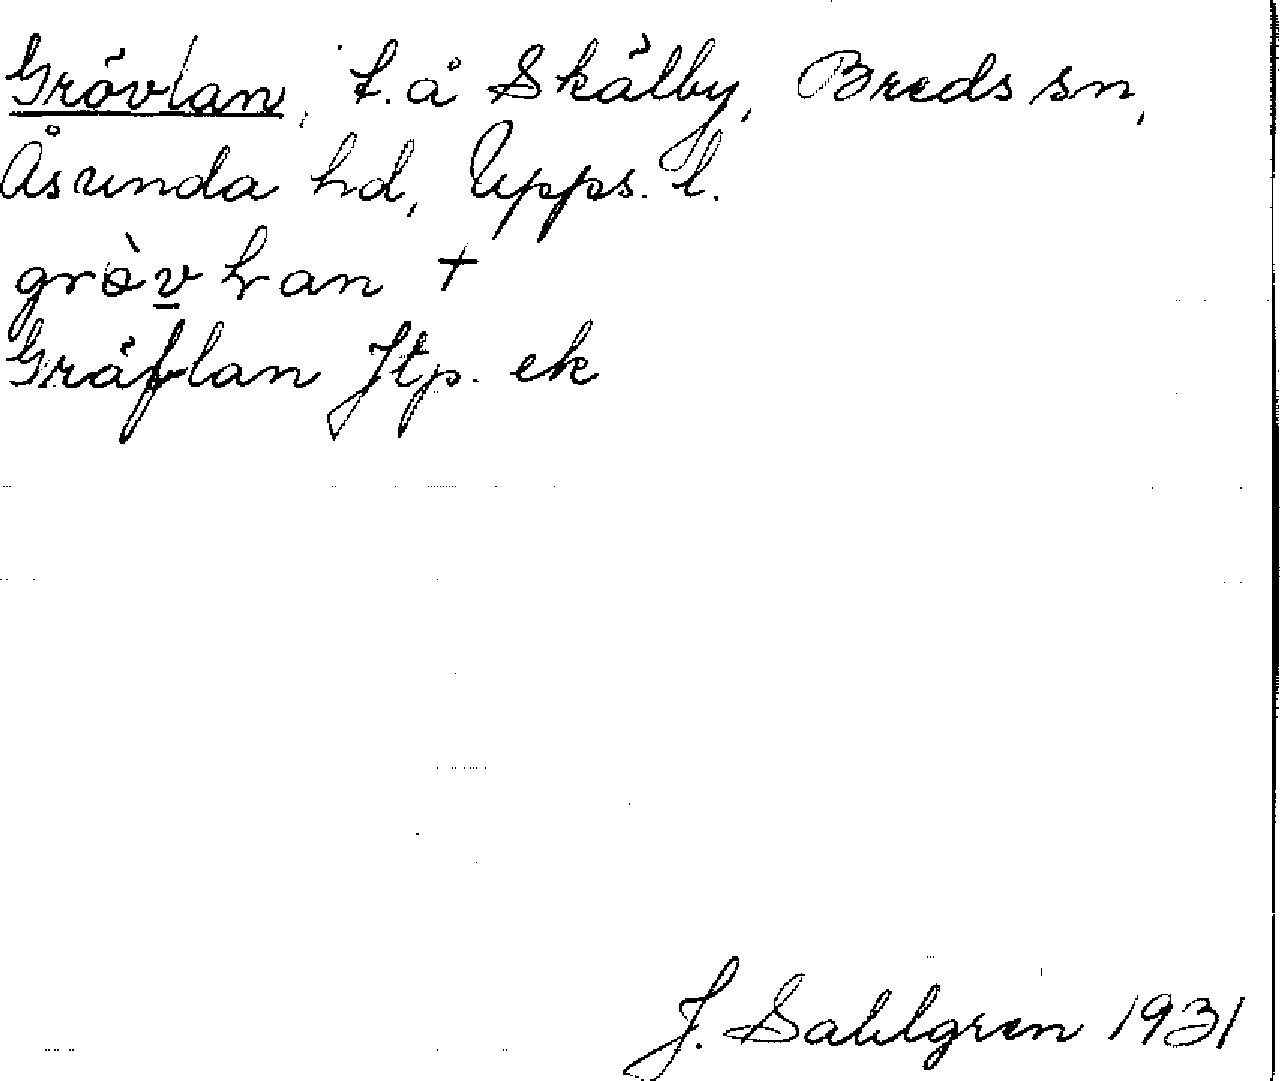 Grövlan, t. å Skälby, Breds sn,
Åsunda hd, Upps. l.
Gräflan Jtp. ek
J. Sahlgren 1931